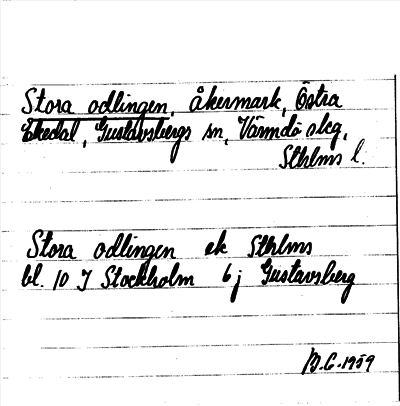 Stora odlingen, åkermark, Östra
Ekedal, Gustavsbergs sn, Värmdö skg,
Sthlms l.
Stora odlingen ek Sthlms
bl. 10 I Stockholm 6 j Gustavsberg
B.G. 1959